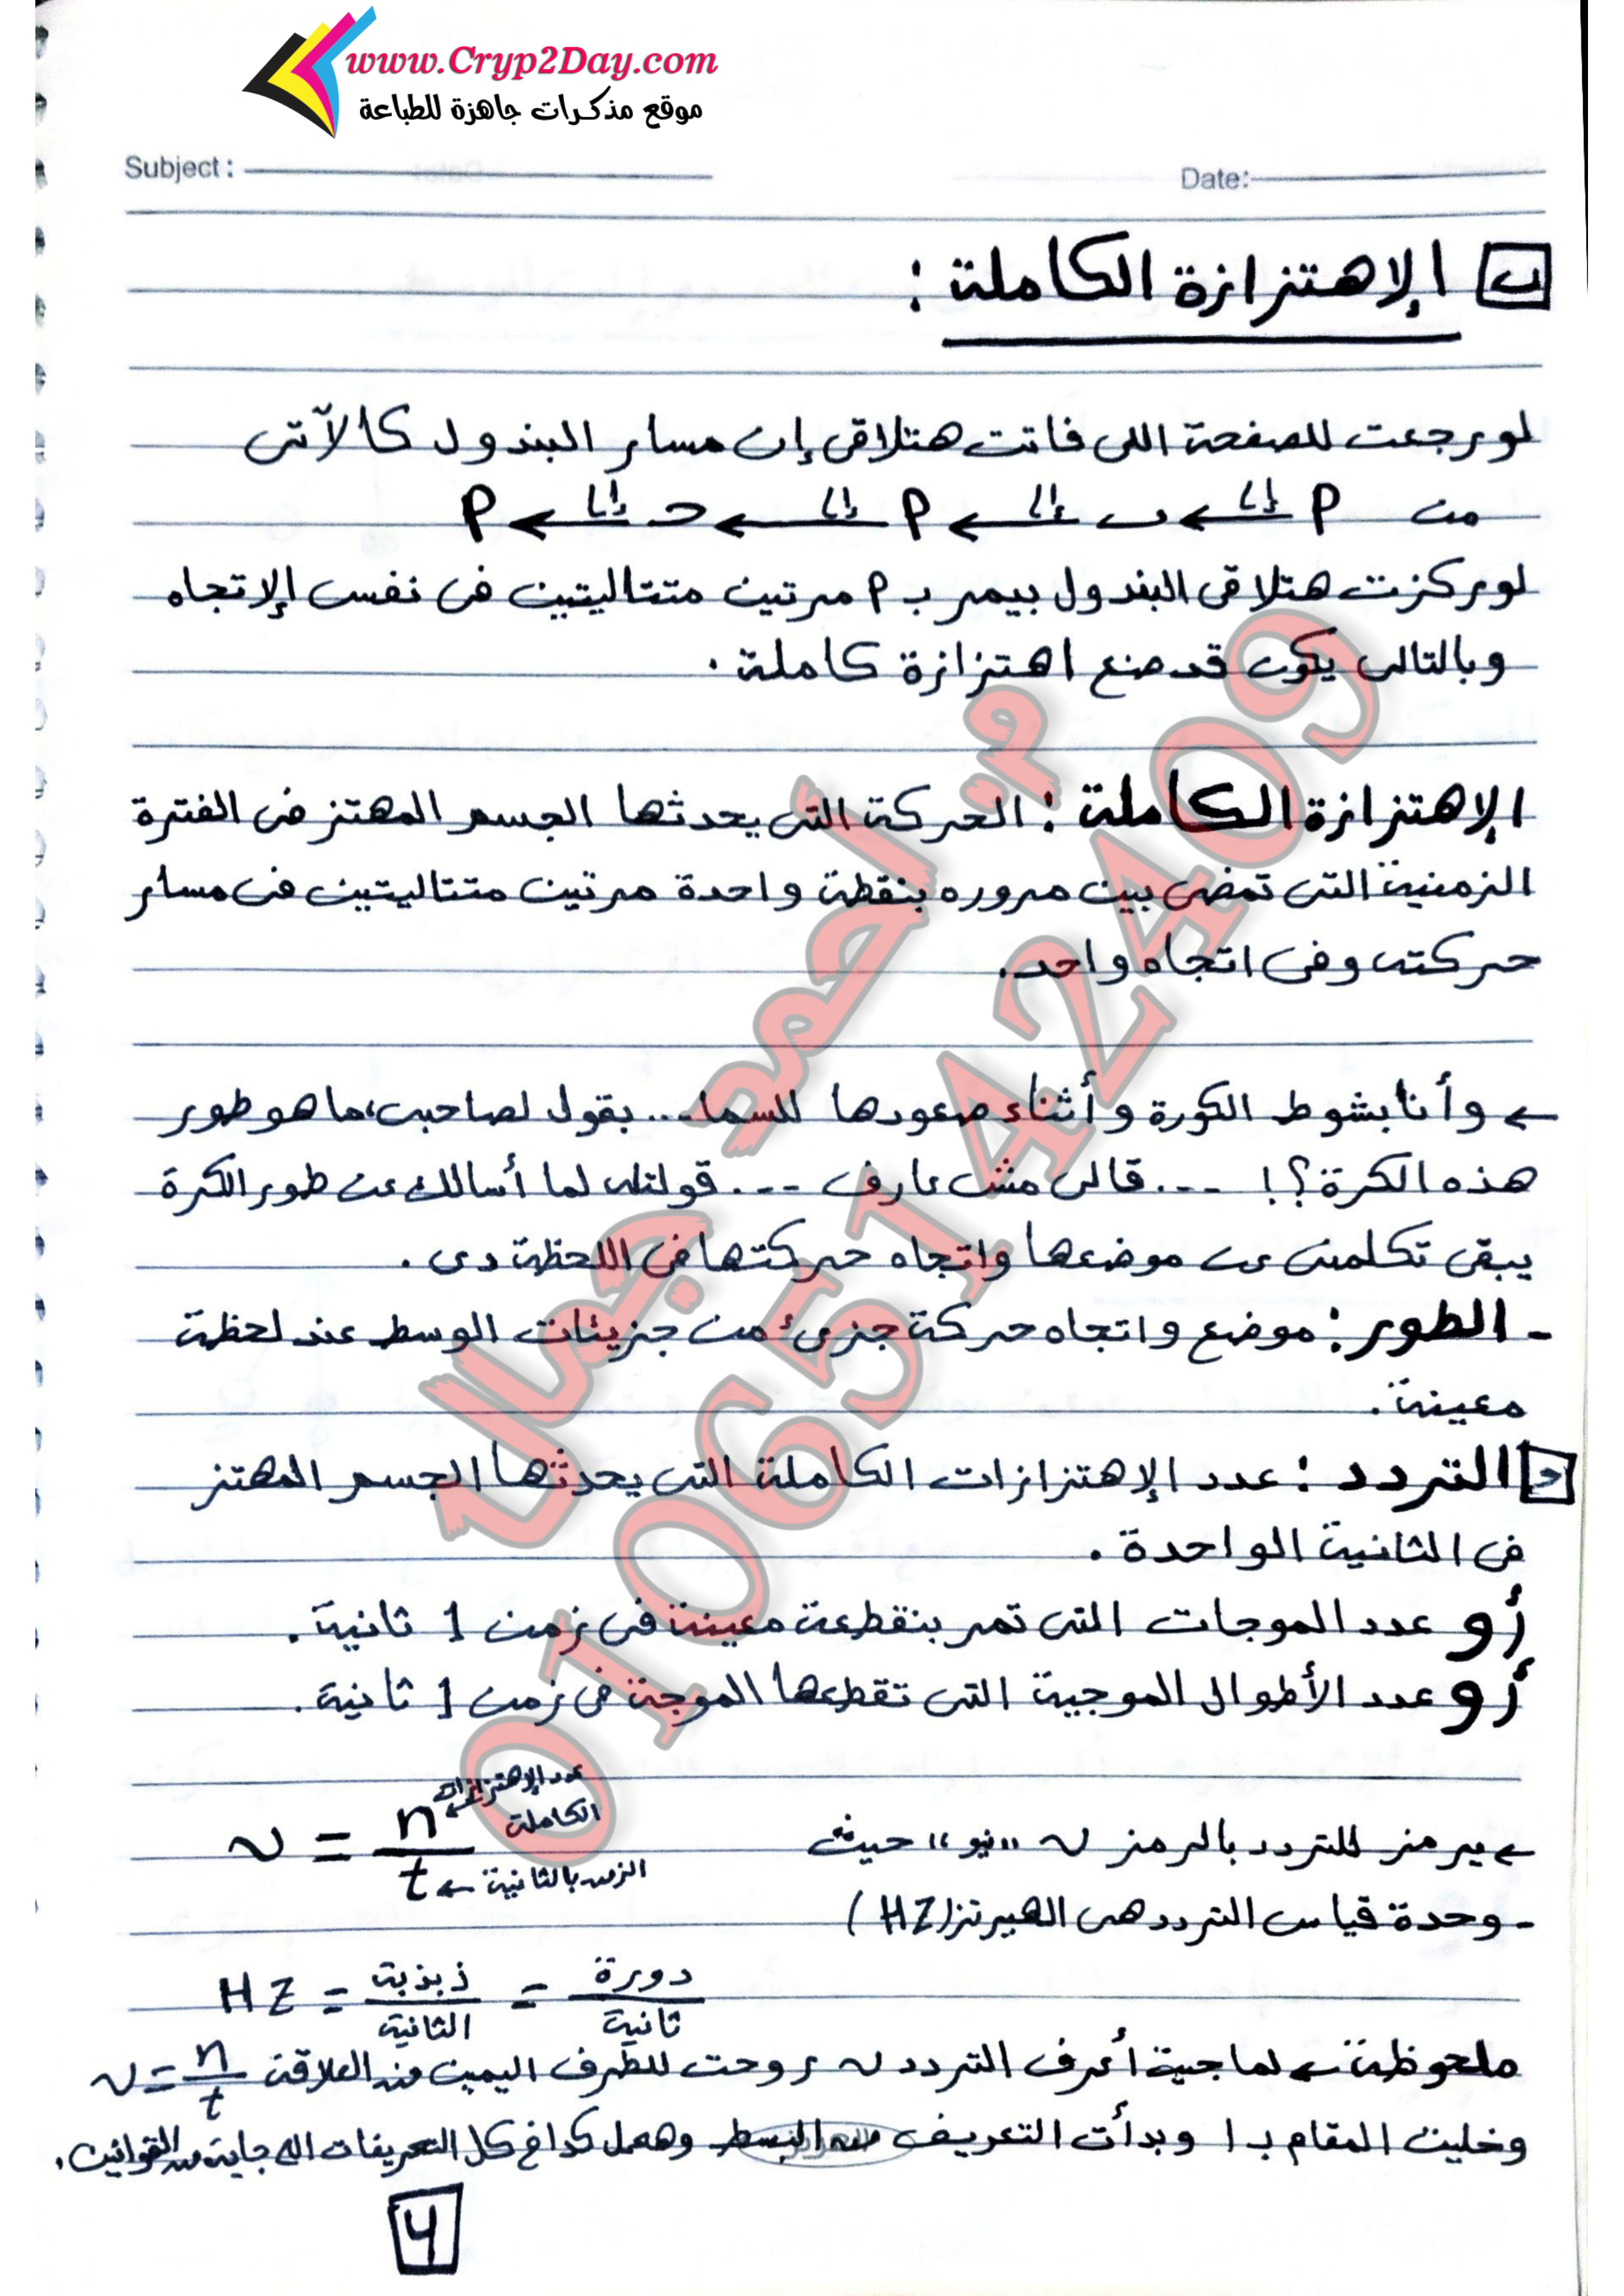 www.Cryp2Day.com
موقع مذكرات جاهزة للطباعة
Subject :
Date:
ب الإهتزازة الكاملة :
لو رجعت للصفحة اللى فاتت هتلاقى إن مسار البندول كالآتى
من P إلى ب إلى P إلى ح إلى P
لو ركزت هتلاقى البندول بيمر بـ P مرتين متتاليتين فى نفس الإتجاه
وبالتالى يكون قد صنع اهتزازة كاملة .
الإهتزازة الكاملة : الحركة التى يحدثها الجسم المهتز فى الفترة
الزمنية التى تمضى بين مروره بنقطة واحدة مرتين متتاليتين فى مسار
حركته وفى اتجاه واحد.
← وأنا بشوط الكورة وأثناء صعودها للسما... بقول لصاحبى، ما هو طور
هذه الكرة؟! ... قالى مش عارف ... قولتله لما أسالك عن طور الكرة
يبقى تكلمنى عن موضعها واتجاه حركتها فى اللحظة دى .
- الطور : موضع واتجاه حركة جزئ من جزيئات الوسط عند لحظة
معينة .
التردد : عدد الإهتزازات الكاملة التى يحدثها الجسم المهتز
فى الثانية الواحدة .
أو عدد الموجات التى تمر بنقطة معينة فى زمن 1 ثانية .
أو عدد الأطوال الموجية التى تقطعها الموجة فى زمن 1 ثانية .
← يرمز للتردد بالرمز ν "نيو" حيث ν = n/t
عدد الإهتزازات الكاملة
الزمن بالثانية
- وحدة قياس التردد هى الهيرتز (HZ)
دورة/ثانية = ذبذبة/الثانية = HZ
ملحوظة ← لما جيت أعرف التردد ν روحت للطرف اليمين من العلاقة ν = n/t
وخليت المقام بـ 1 وبدأت التعريف من البسط وهعمل كدا فى كل التعريفات اللى جاية من القوانين .
4
م. أحمد جمال
01065142409